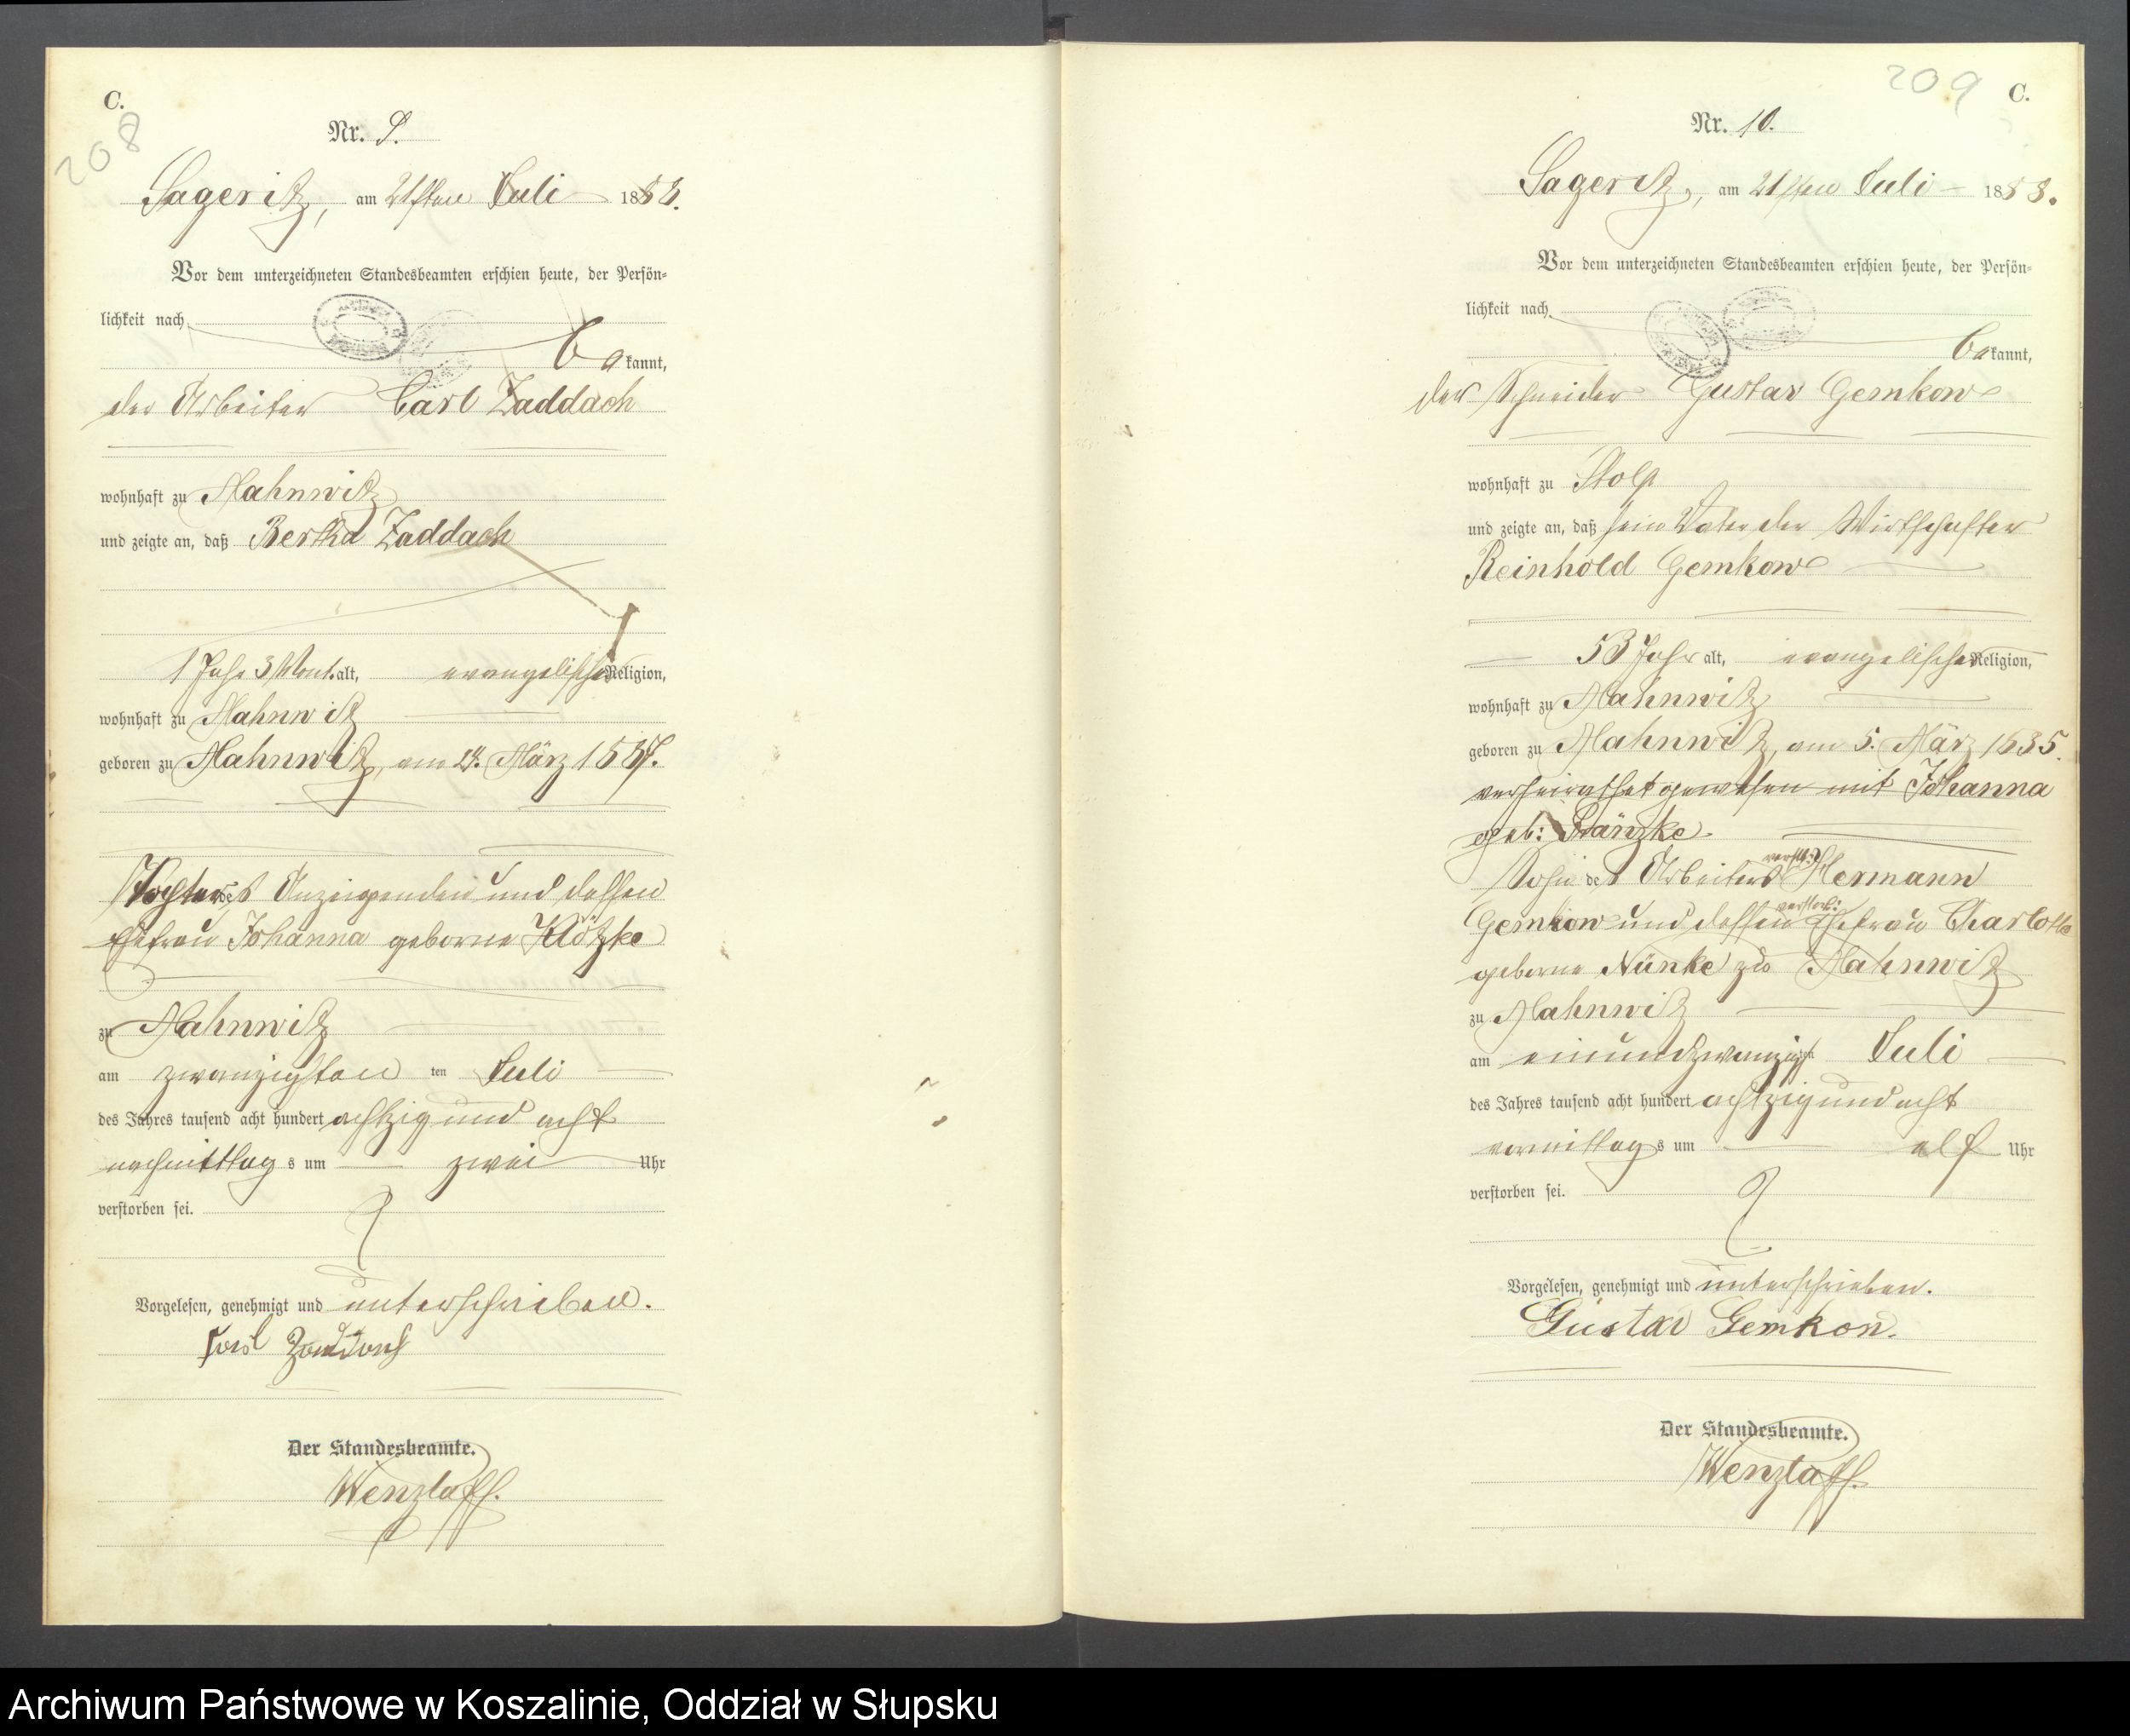 C.
208
Nr. 9.
Sageritz, am 21sten Juli 1888.
Vor dem unterzeichneten Standesbeamten erschien heute, der Persön-
lichkeit nach
bekannt,
der Arbeiter Carl Zaddach
wohnhaft zu Mahnwitz
und zeigte an, daß Bertha Zaddach
1 Jahr 3 Mont. alt, evangelischer Religion,
wohnhaft zu Mahnwitz
geboren zu Mahnwitz, am März 1887.
Tochter des Anzeigenden und dessen
Ehefrau Johanna geborne Klötzke
zu Mahnwitz
am zwanzigsten ten Juli
des Jahres tausend acht hundert achtzig und acht
nachmittags um zwei Uhr
verstorben sei.
Vorgelesen, genehmigt und unterschrieben.
Carl Zaddach
Der Standesbeamte.
Wenzlaff.
209
C.
Nr. 10.
Sageritz, am 21sten Juli 1888.
Vor dem unterzeichneten Standesbeamten erschien heute, der Persön-
lichkeit nach
bekannt,
der Schneider Gustav Gemkow
wohnhaft zu Stolp
und zeigte an, daß sein Vater der Wirthschafter
Reinhold Gemkow
53 Jahr alt, evangelischer Religion,
wohnhaft zu Mahnwitz
geboren zu Mahnwitz, am 5. März 1835.
verheirathet gewesen mit Johanna
geb: Pränzke.
Sohn des Arbeiters verstb: Hermann
Gemkow und dessen verstorb: Ehefrau Charlotte
geborne Nünke zu Mahnwitz
zu Mahnwitz
am einundzwanzigsten Juli
des Jahres tausend acht hundert achtzig und acht
vormittags um elf Uhr
verstorben sei.
Vorgelesen, genehmigt und unterschrieben.
Gustav Gemkow.
Der Standesbeamte.
Wenzlaff.
Archiwum Państwowe w Koszalinie, Oddział w Słupsku